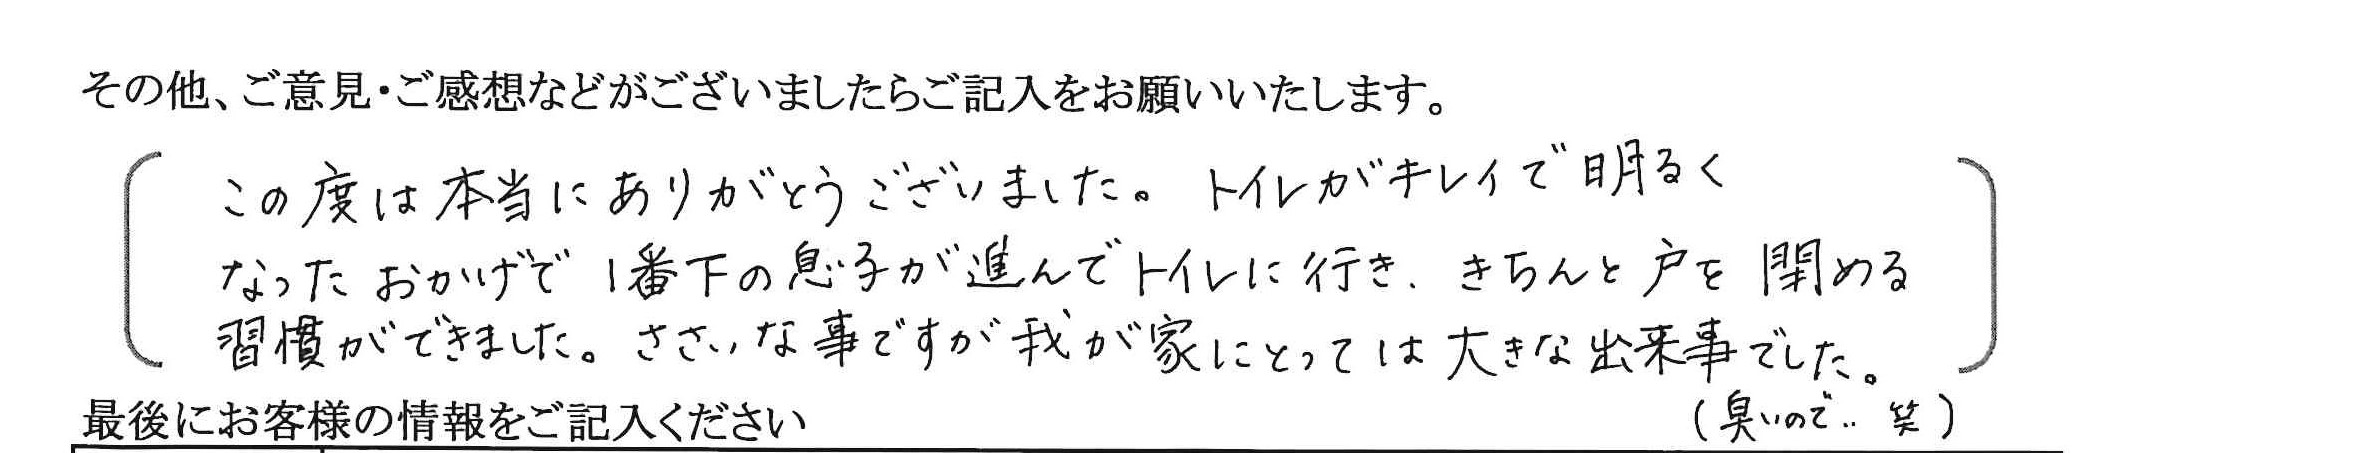 その他、ご意見・ご感想などがございましたらご記入をお願いいたします。
この度は本当にありがとうございました。トイレがキレイで明るく
なったおかげで1番下の息子が進んでトイレに行き、きちんと戸を閉める
習慣ができました。ささいな事ですが我が家にとっては大きな出来事でした。
(臭いので‥笑)
最後にお客様の情報をご記入ください